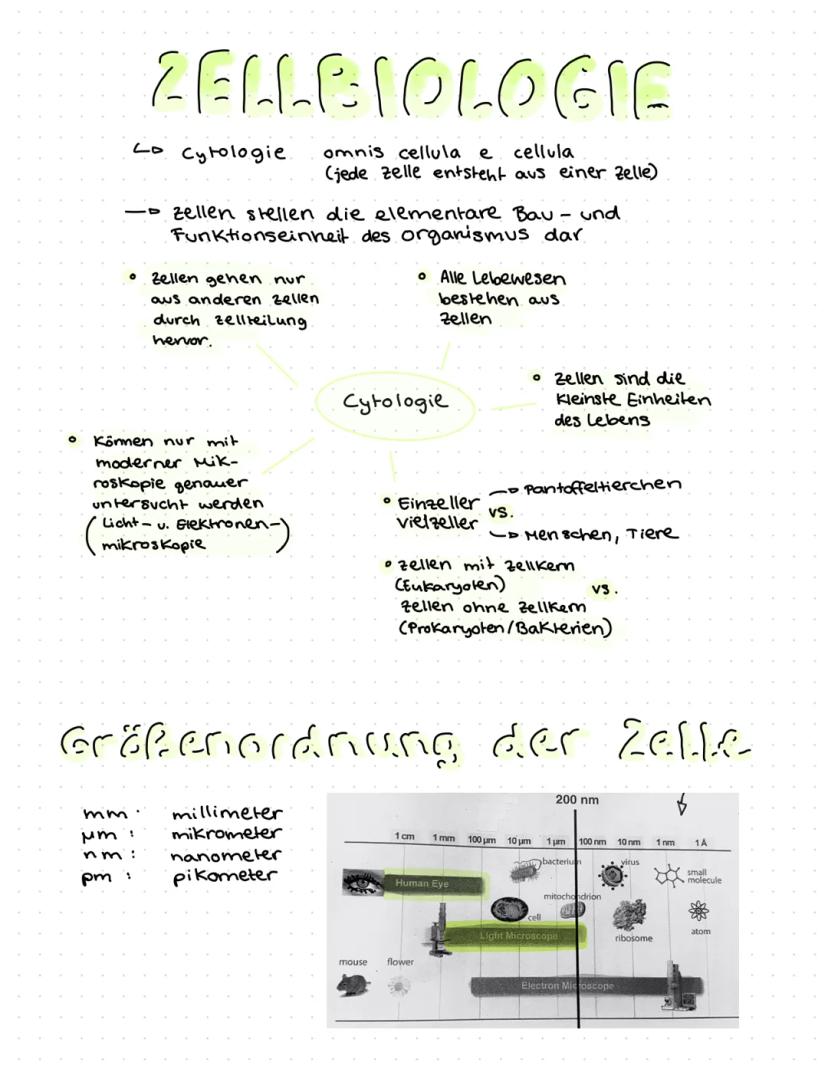 ZELLBIOLOGIE
↳ Cytologie omnis cellula e cellula
(jede Zelle entsteht aus einer Zelle)
→ Zellen stellen die elementare Bau- und
Funktionseinheit des Organismus dar
• Zellen gehen nur
aus anderen Zellen
durch Zellteilung
hervor.
• Alle Lebewesen
bestehen aus
Zellen
Cytologie
• Zellen sind die
kleinste Einheiten
des Lebens
• Können nur mit
moderner Mik-
roskopie genauer
untersucht werden
(Licht- u. Elektronen-
mikroskopie)
• Einzeller → Pantoffeltierchen
vs.
Vielzeller → Menschen, Tiere
• Zellen mit Zellkern
(Eukaryoten) vs.
Zellen ohne Zellkern
(Prokaryoten/Bakterien)
Größenordnung der Zelle
mm : millimeter
µm : mikrometer
nm : nanometer
pm : pikometer
200 nm
1 cm 1 mm 100 µm 10 µm 1 µm 100 nm 10 nm 1 nm 1 Å
bacterium
virus
small
molecule
Human Eye
mitochondrion
cell
Light Microscope
ribosome
atom
mouse flower
Electron Microscope